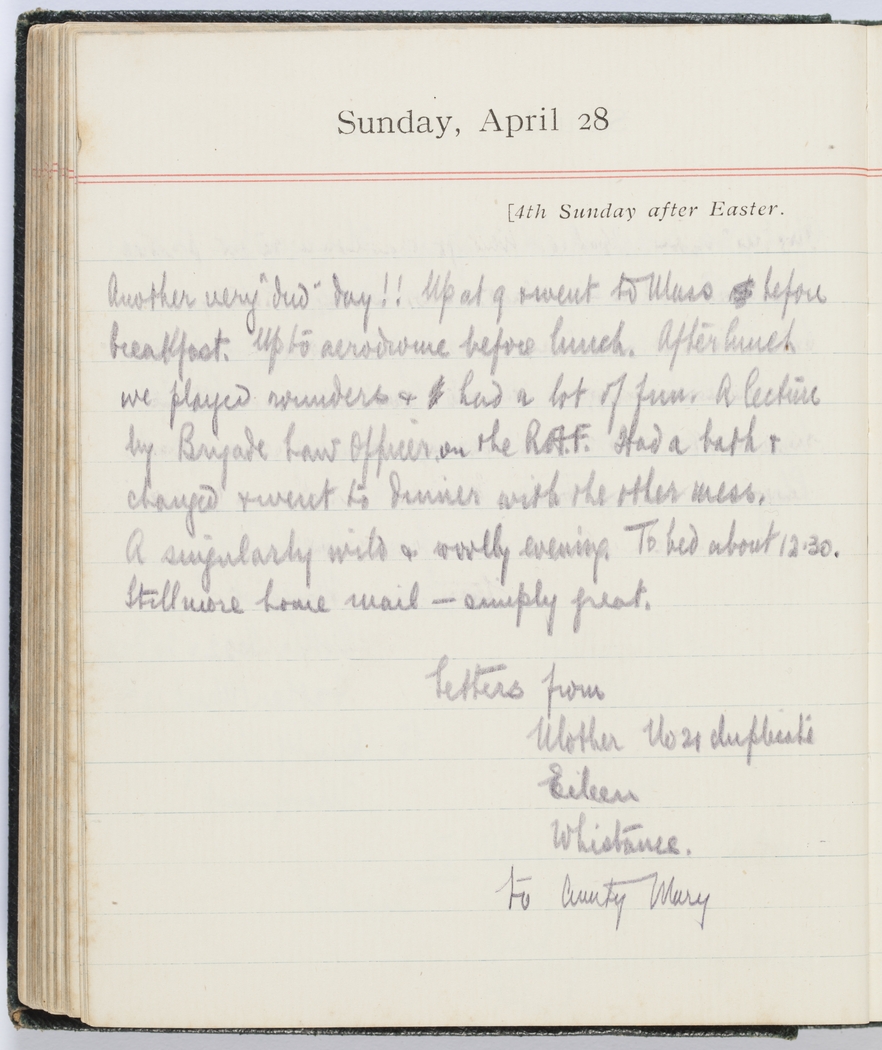 Sunday, April 28
[4th Sunday after Easter.
Another very "dud" day!! Up at 9 & went to Mass before
breakfast. Up to aerodrome before lunch. After lunch
we played rounders & had a lot of fun. A lecture
by Brigade Law Officer, on the R.A.F. Had a bath &
changed & went to dinner with the other mess.
A singularly wild & woolly evening. To bed about 12.30.
Still more home mail — simply great.
Letters from
Mother No 21 duplicate
Eileen
Whistance.
to Aunty Mary